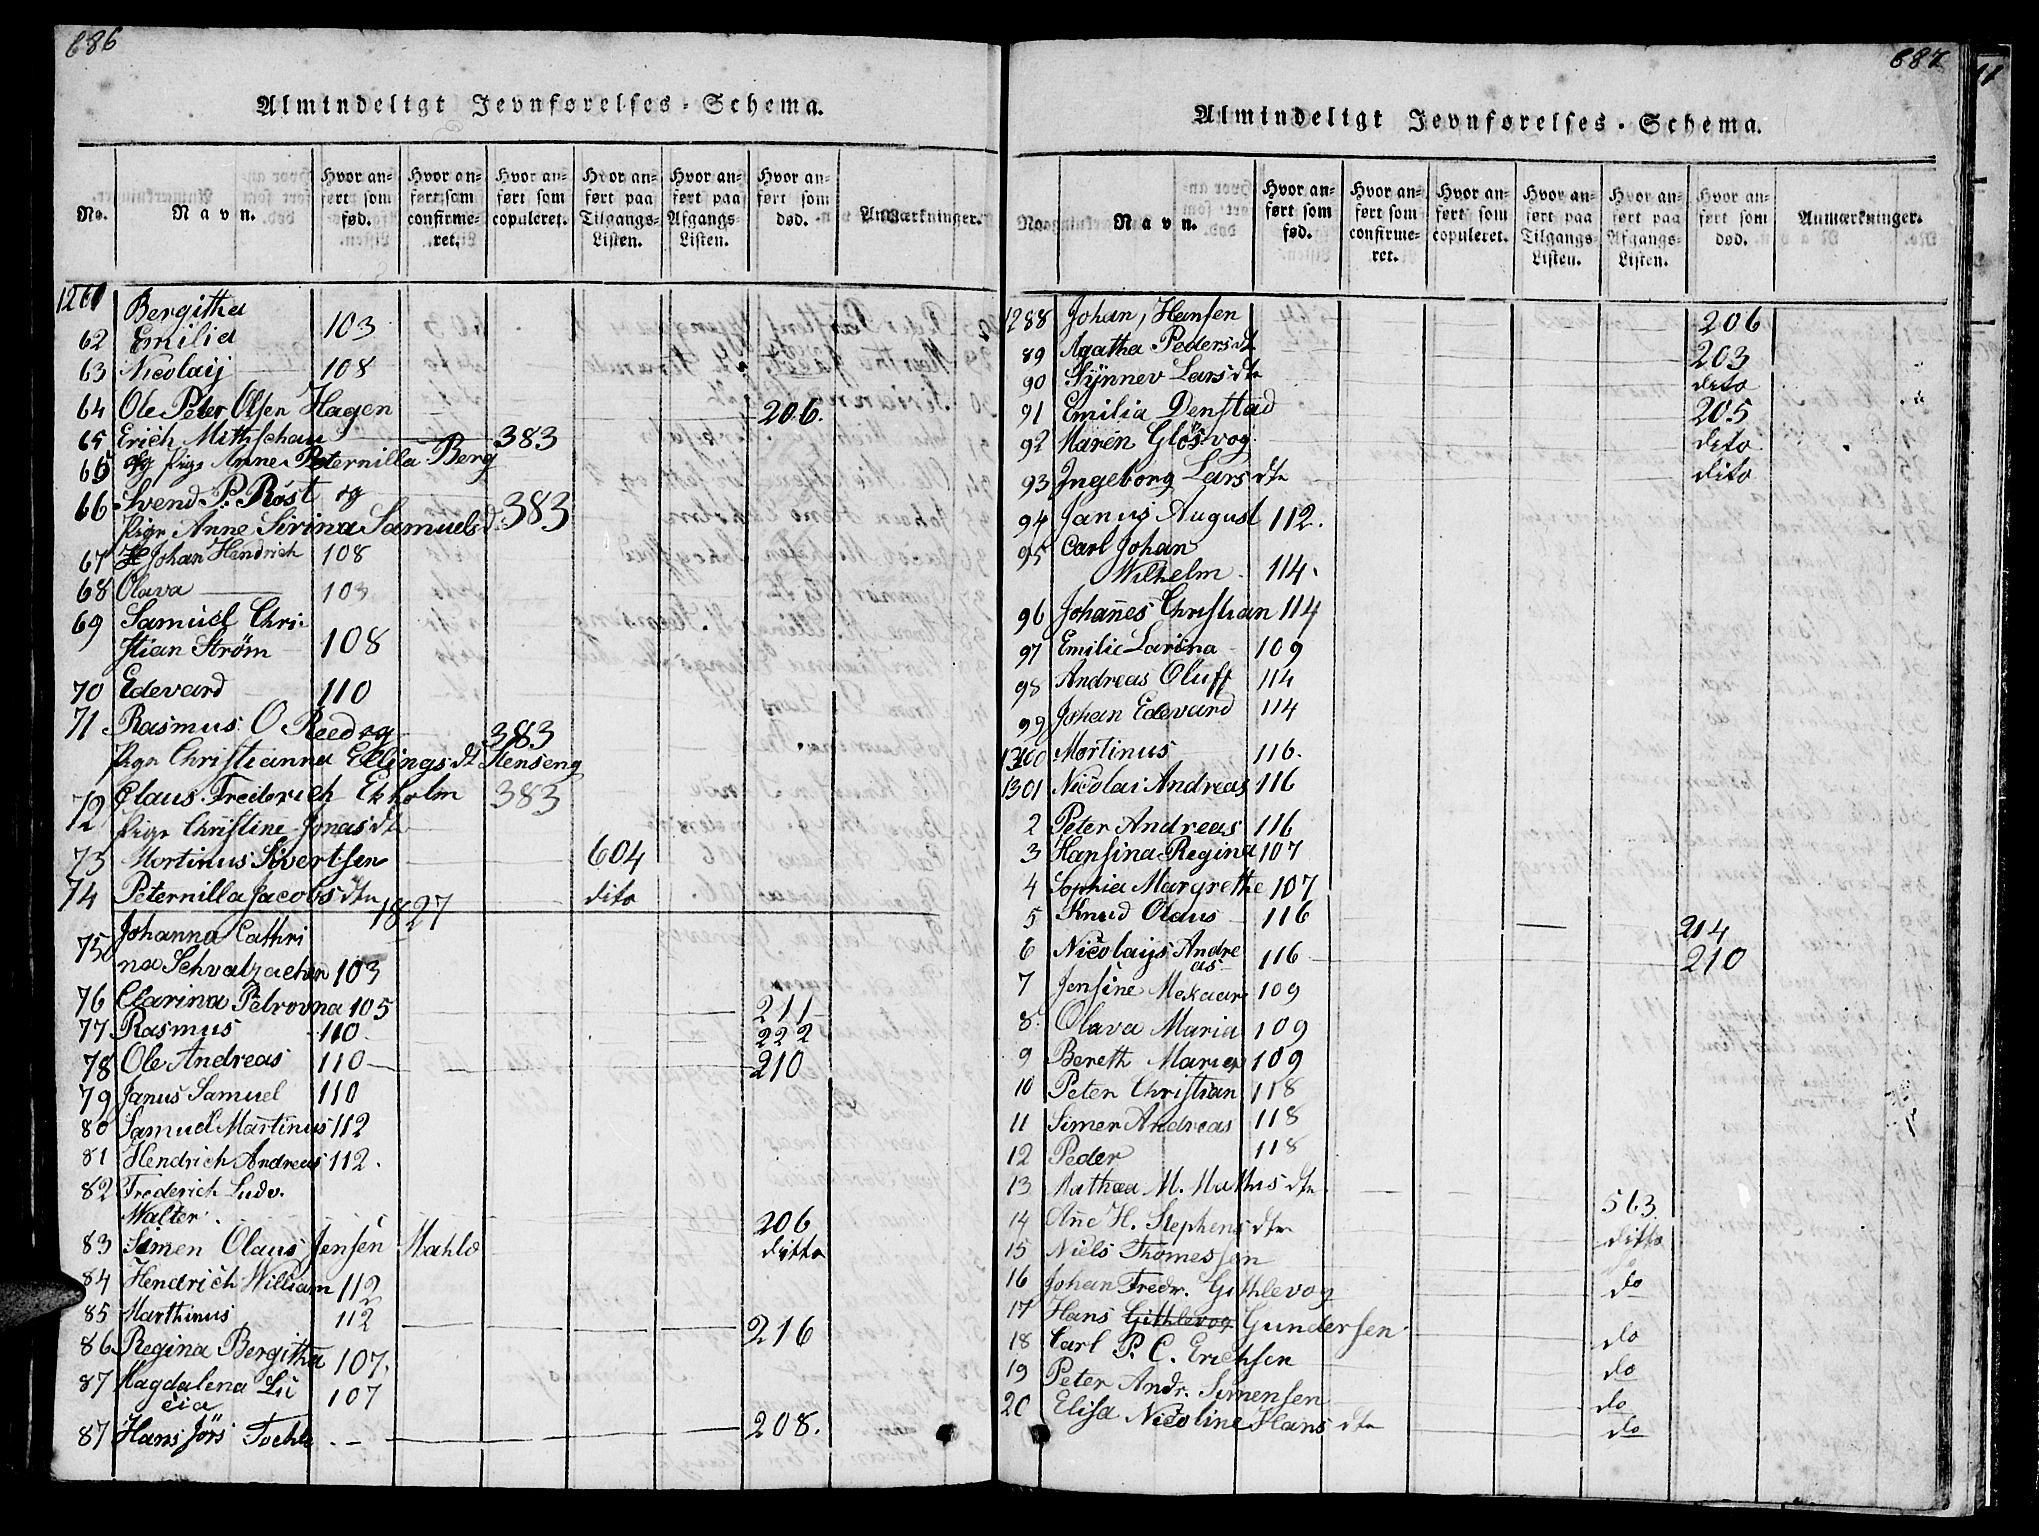 686
Almindeligt Jevnførelses-Schema.
No. Navn. Hvor anført som fød. Hvor anført som confirmeret. Hvor anført som copuleret. Hvor anført paa Tilgangs-Listen. Hvor anført paa Afgangs-Listen. Hvor anført som død. Anmærkninger.
1261 Bergitha
62 Emilia 103
63 Nicolaij 108
64 Ole Peter Olsen Hagen 206.
65 Erich Mithschau 383
65 og Pige Anne Peternilla Berg
66 Svend P. Røst og
Pige Anne Sirina Samuelsd. 383
67 Johan Hendrich 108
68 Olava 103
69 Samuel Chri-
stian Strøm 108
70 Edevard 110
71 Rasmus O. Reed og 383
Pige Christianna Ellingsdt Stenseng
72 Claus Frederich Ekholm 383
Pige Christine Jonasdtr
73 Mortinus Sivertsen 604
74 Peternilla Jacobsdtr dito
1827
75 Johanna Cathri
na Schvalzacher 103
76 Clarina Petrovna 105 211
77 Rasmus 110 222
78 Ole Andreas 110 210
79 Janus Samuel 110
80 Samuel Martinus 112
81 Hendrich Andreas 112.
82 Frederich Ludv.
Walter. 206
83 Simen Olaus Jensen Mahlo ditto
84 Hendrich William 112
85 Marthinus 112 216
86 Regina Bergitha 107.
87 Magdalena Lu
cia 107
87 Hans Jörs 208.
687
Almindeligt Jevnførelses-Schema.
No. Navn. Hvor anført som fød. Hvor anført som confirmeret. Hvor anført som copuleret. Hvor anført paa Tilgangs-Listen. Hvor anført paa Afgangs-Listen. Hvor anført som død. Anmærkninger.
1288 Johan, Hansen 206
89 Agatha Pedersdtr 203
90 Synnev Larsdtr dito
91 Emilia Denstad 205
92 Maren Glosvog dito
93 Ingeborg Larsdtr dito
94 Janus August 112.
95 Carl Johan
Wilhelm 114.
96 Johannes Christian 114
97 Emilie Larina 109
98 Andreas Oluff 114
99 Johan Edevard 114
1300 Mortinus 116.
1301 Nicolai Andreas 116
2 Peter Andreas 116
3 Hansina Regina 107
4 Sophia Margrethe 107
5 Knud Olaus 116 214
6 Nicolaijs Andre
as 116 210
7 Jensine 109
8. Olava Maria 109
9 Bereth Maria 109
10 Peter Christian 118
11 Simer Andreas 118
12 Peder 118
13 M. Mathisdtr 563
14 Ane H. Stephensdtr ditto
15 Niels Thomessen
16 Johan Fredr. Githlevog do
17 Hans Githlevog Gundersen
18 Carl P. C. Erichsen do
19 Peter Andr. Simensen do
20 Elisa Nicoline Hansdtr do
do